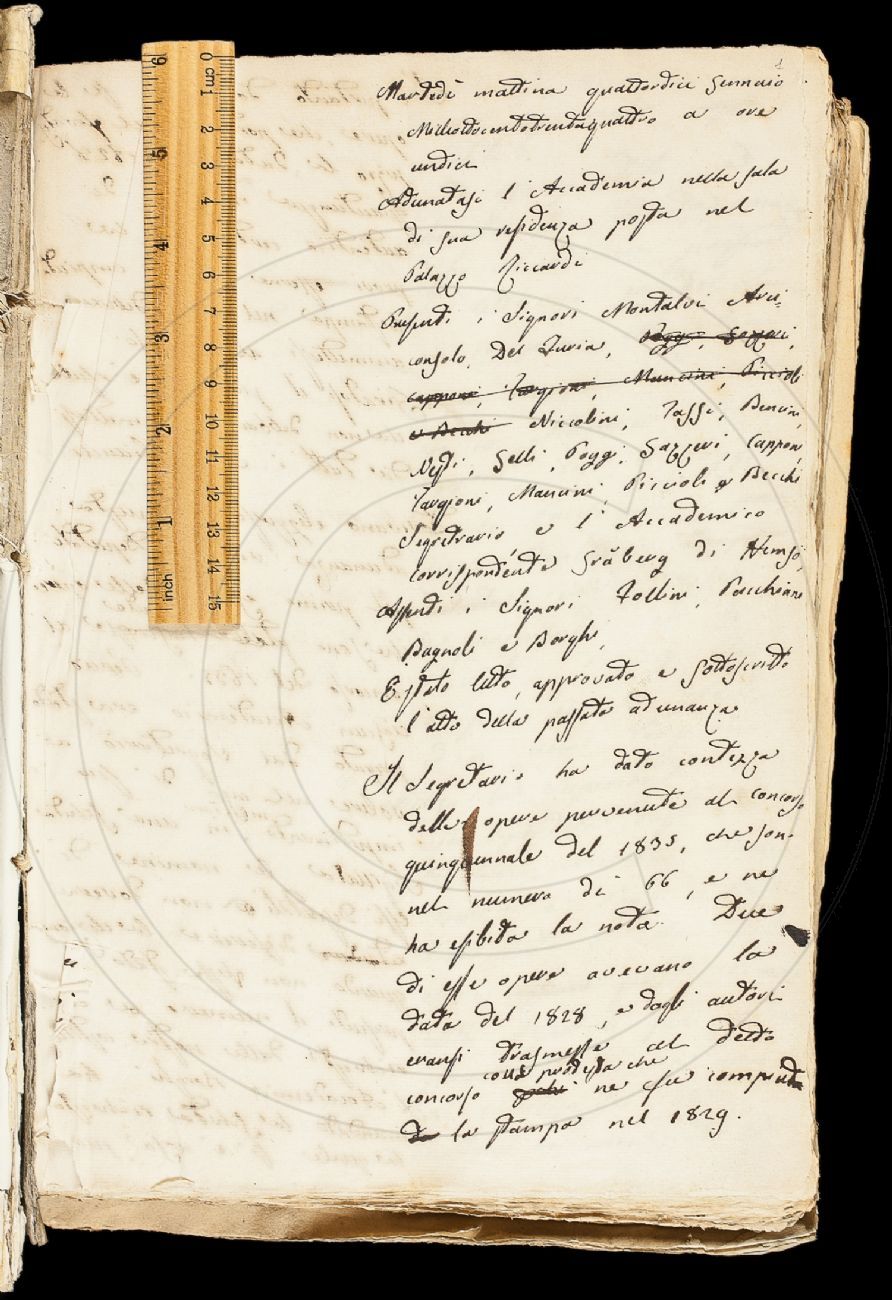 1
Martedì mattina quattordici Gennaio
Milleottocentotrentaquattro a ore
undici
Adunatasi l'Accademia nella sala
di sua residenza posta nel
Palazzo Riccardi
Presenti i Signori Montalvi Arci=
consolo, Del Furia, Poggi, Gazzeri,
Capponi, Targioni, Mancini, Piccioli
e Becchi Niccolini, Tassi, Bencini,
Nesti, Gelli, Poggi, Gazzeri, Capponi,
Targioni, Mancini, Piccioli e Becchi
Segretario e l'Accademico
corrispondente Gräberg di Hemsö,
Assenti i Signori Follini, Pacchiani
Bagnoli e Borghi,
È stato letto, approvato e sottoscritto
l'atto della passata adunanza
Il Segretario ha dato contezza
delle opere pervenute al concorso
quinquennale del 1835, che son
nel numero di 66, e ne
ha esibita la nota. Due
di esse opere avevano la
data del 1828, e dagli autori
eransi trasmesse al detto
colla protesta che
concorso ne fu compiuta
la stampa nel 1829.
0 cm 1 2 3 4 5 6 7 8 9 10 11 12 13 14 15
inch 1 2 3 4 5 6